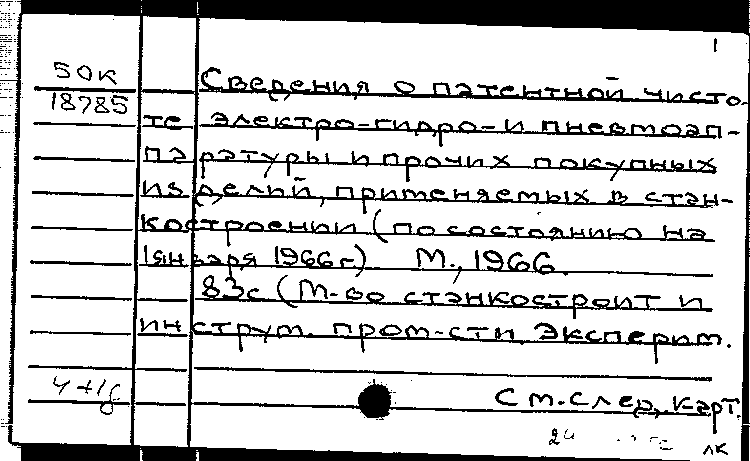 1
50к
18785
Сведения о патентной чисто-
те электро-гидро- и пневмоап-
паратуры и прочих покупных
изделий, применяемых в стан-
костроении (по состоянию на
1 января 1966 г.) М., 1966.
83с (М-во станкостроит и
инструм. пром-сти. Эксперим.
См. след. карт.
лк